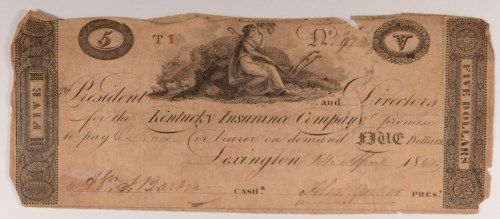 5 T 1 No. V
FIVE
The President and Directors
for the Kentucky Insurance Company promise
to pay or bearer on demand FIVE Dollars
Lexington April
CASHr. PRES.
FIVE DOLLARS